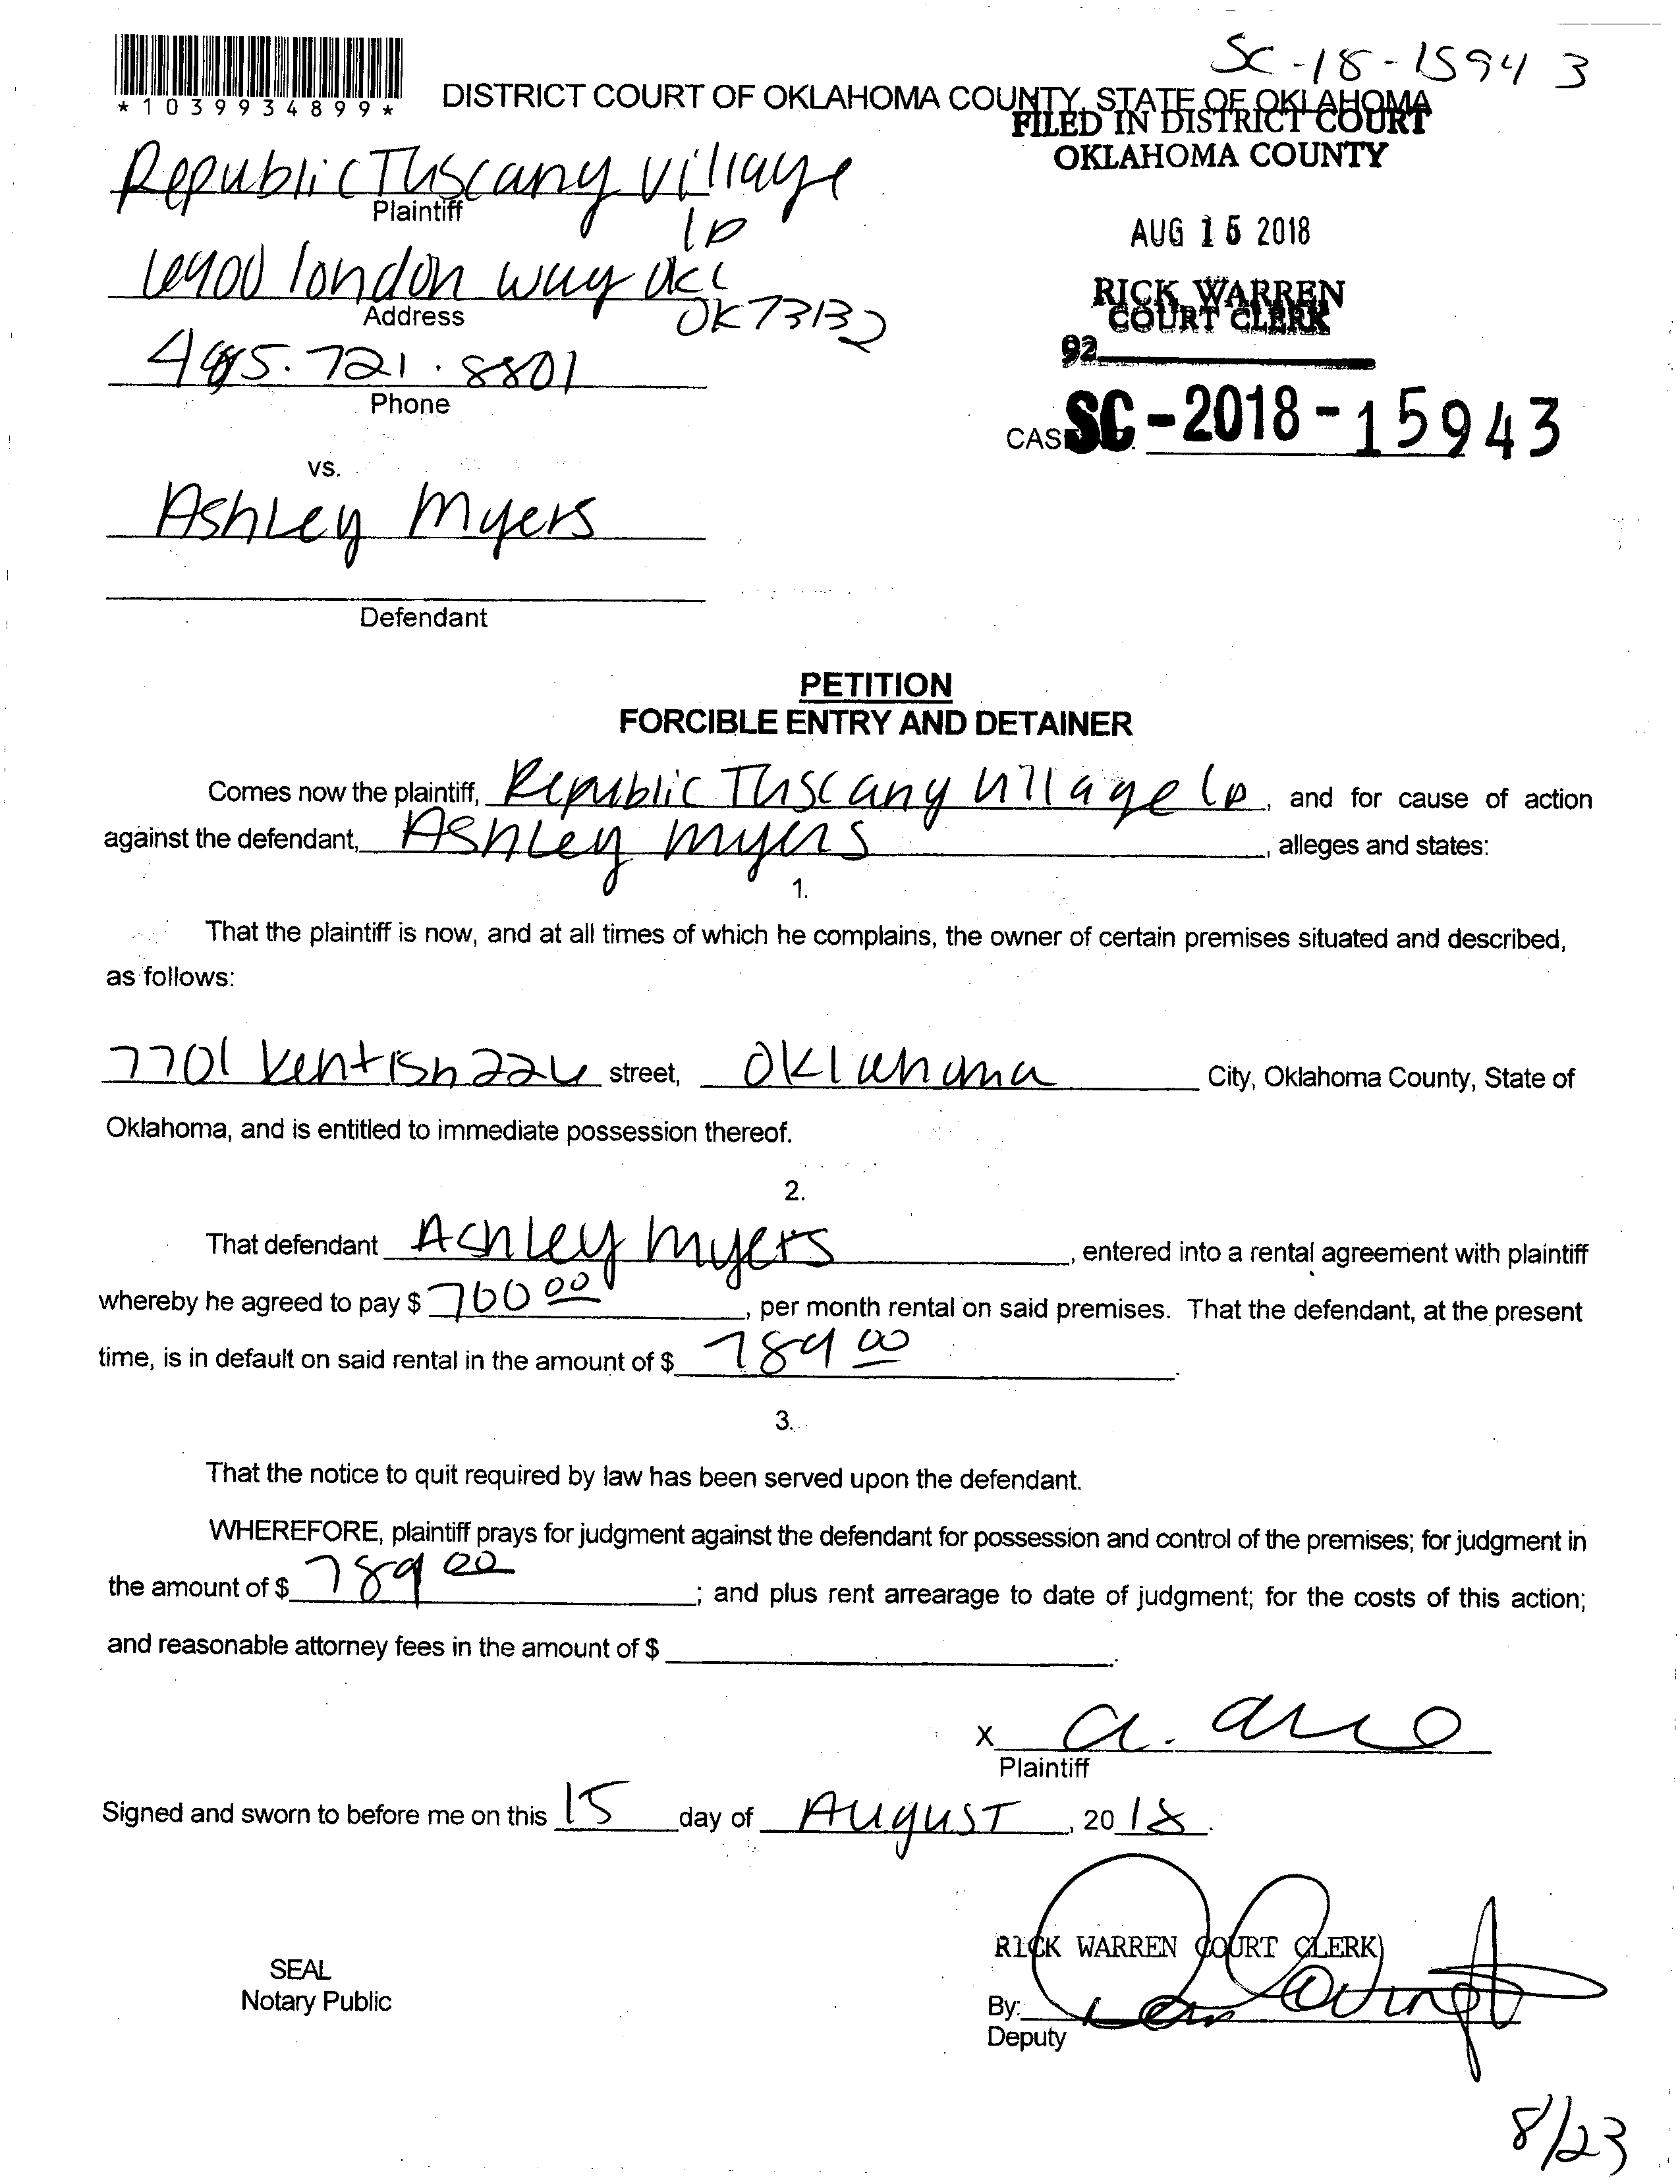 SC-18-15943
*1039934899*
DISTRICT COURT OF OKLAHOMA COUNTY, STATE OF OKLAHOMA
FILED IN DISTRICT COURT
OKLAHOMA COUNTY
Republic Tuscany Village
Plaintiff
lp
AUG 15 2018
6900 london way okc
Address
OK 73132
RICK WARREN
COURT CLERK
92
405.721.8801
Phone
CAS SC-2018-15943
vs.
Ashley Myers
Defendant
PETITION
FORCIBLE ENTRY AND DETAINER
Comes now the plaintiff, Republic Tuscany Village lp, and for cause of action
against the defendant, Ashley Myers, alleges and states:
1.
That the plaintiff is now, and at all times of which he complains, the owner of certain premises situated and described,
as follows:
7701 Kentish 226 street, Oklahoma City, Oklahoma County, State of
Oklahoma, and is entitled to immediate possession thereof.
2.
That defendant Ashley Myers, entered into a rental agreement with plaintiff
whereby he agreed to pay $ 760 00, per month rental on said premises. That the defendant, at the present
time, is in default on said rental in the amount of $ 789 00.
3.
That the notice to quit required by law has been served upon the defendant.
WHEREFORE, plaintiff prays for judgment against the defendant for possession and control of the premises; for judgment in
the amount of $ 789 00; and plus rent arrearage to date of judgment; for the costs of this action;
and reasonable attorney fees in the amount of $
X
Plaintiff
Signed and sworn to before me on this 15 day of August, 2018.
RICK WARREN COURT CLERK
SEAL
Notary Public
By:
Deputy
8/23